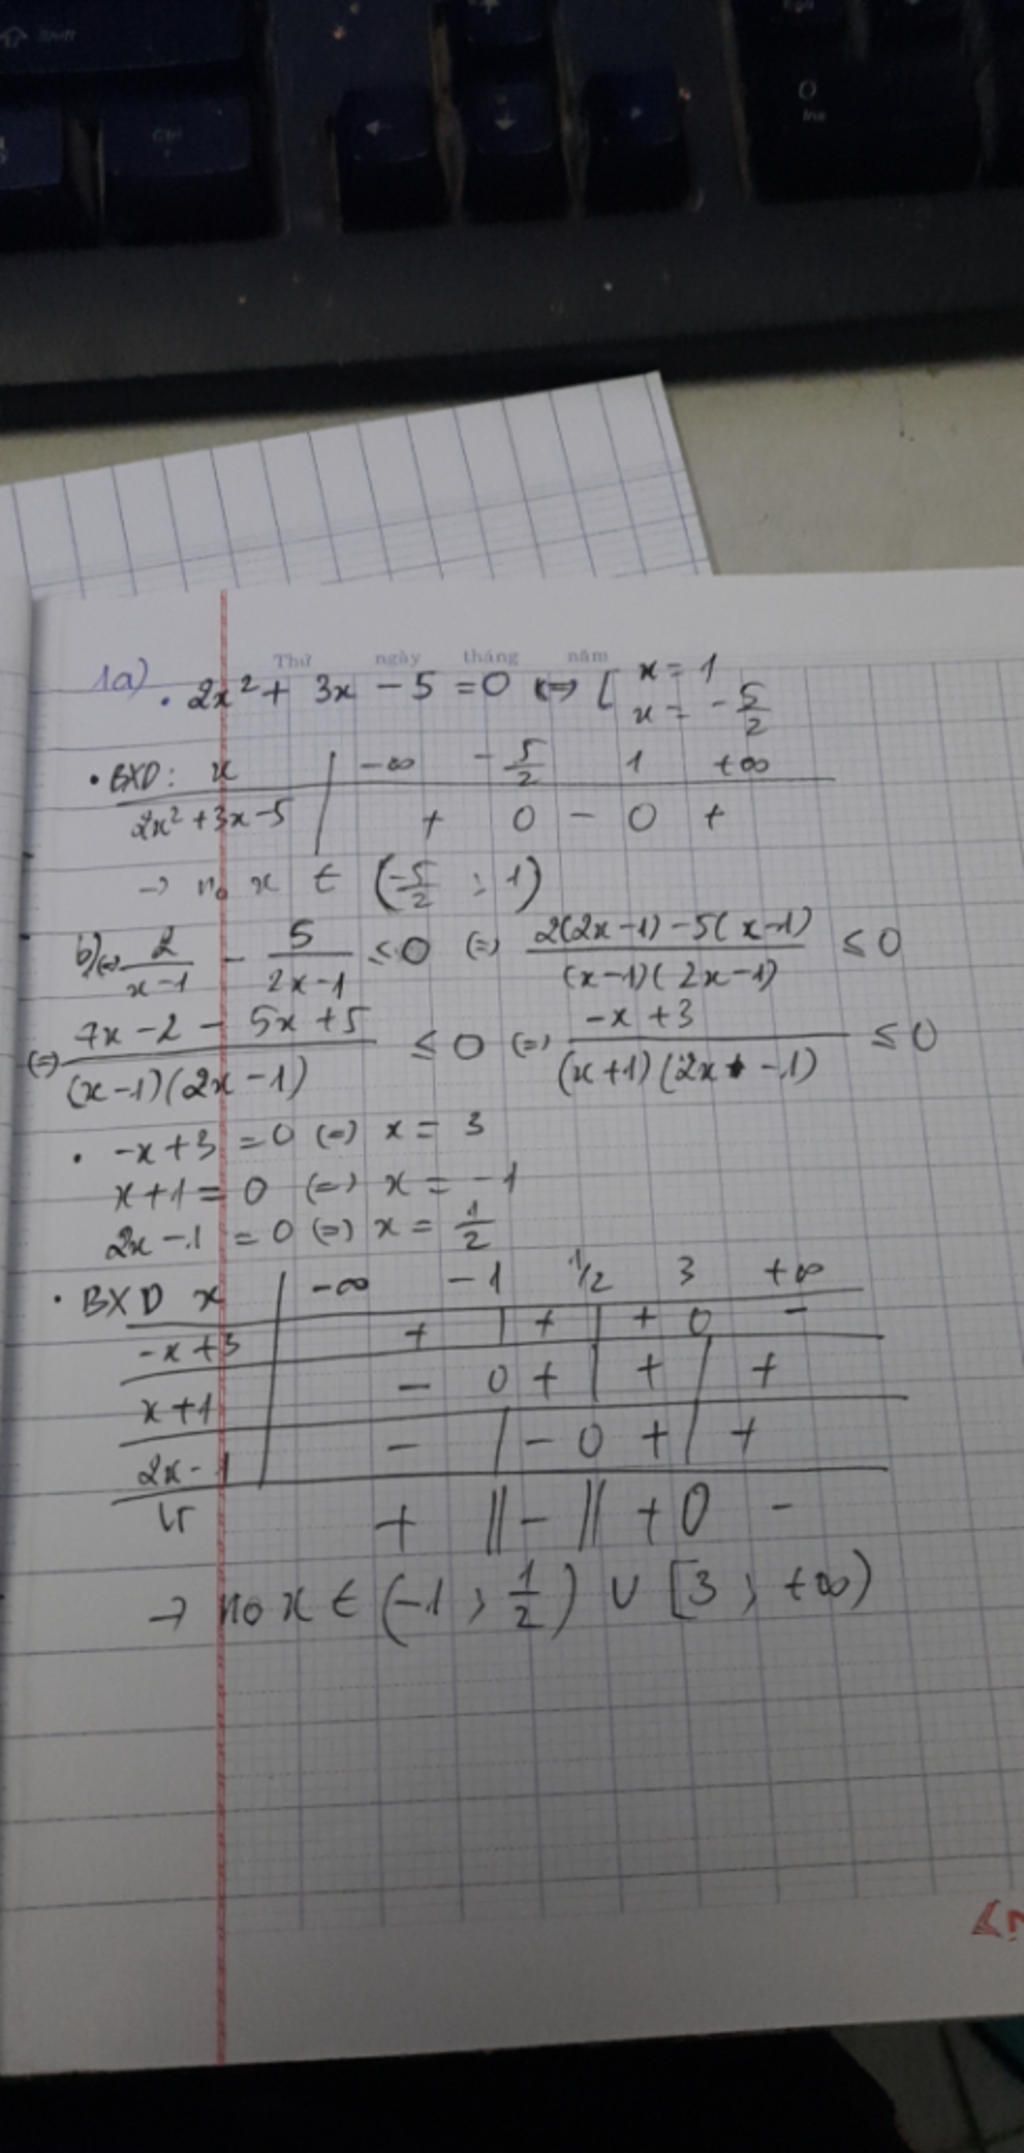 Shift
Ctrl
0
Ins
Thứ ngày tháng năm
1a) • 2x² + 3x - 5 = 0 <=> [ x = 1
x = - 5/2
• BXD: x | -∞ - 5/2 1 +∞
2x² + 3x - 5 | + 0 - 0 +
→ no x ∈ (-5/2 ; 1)
b) <=> 2/(x-1) - 5/(2x-1) ≤ 0 (=) (2(2x-1) - 5(x-1))/((x-1)(2x-1)) ≤ 0
(=) (4x - 2 - 5x + 5)/((x-1)(2x-1)) ≤ 0 (=) (-x + 3)/((x+1)(2x - 1)) ≤ 0
• -x + 3 = 0 (=) x = 3
x + 1 = 0 (=) x = -1
2x - 1 = 0 (=) x = 1/2
• BXD x | -∞ -1 1/2 3 +∞
-x + 3 | + | + | + 0 -
x + 1 | - 0 + | + | +
2x - 1 | - | - 0 + | +
+ || - || + 0 -
→ no x ∈ (-1 ; 1/2) ∪ [3 ; +∞)